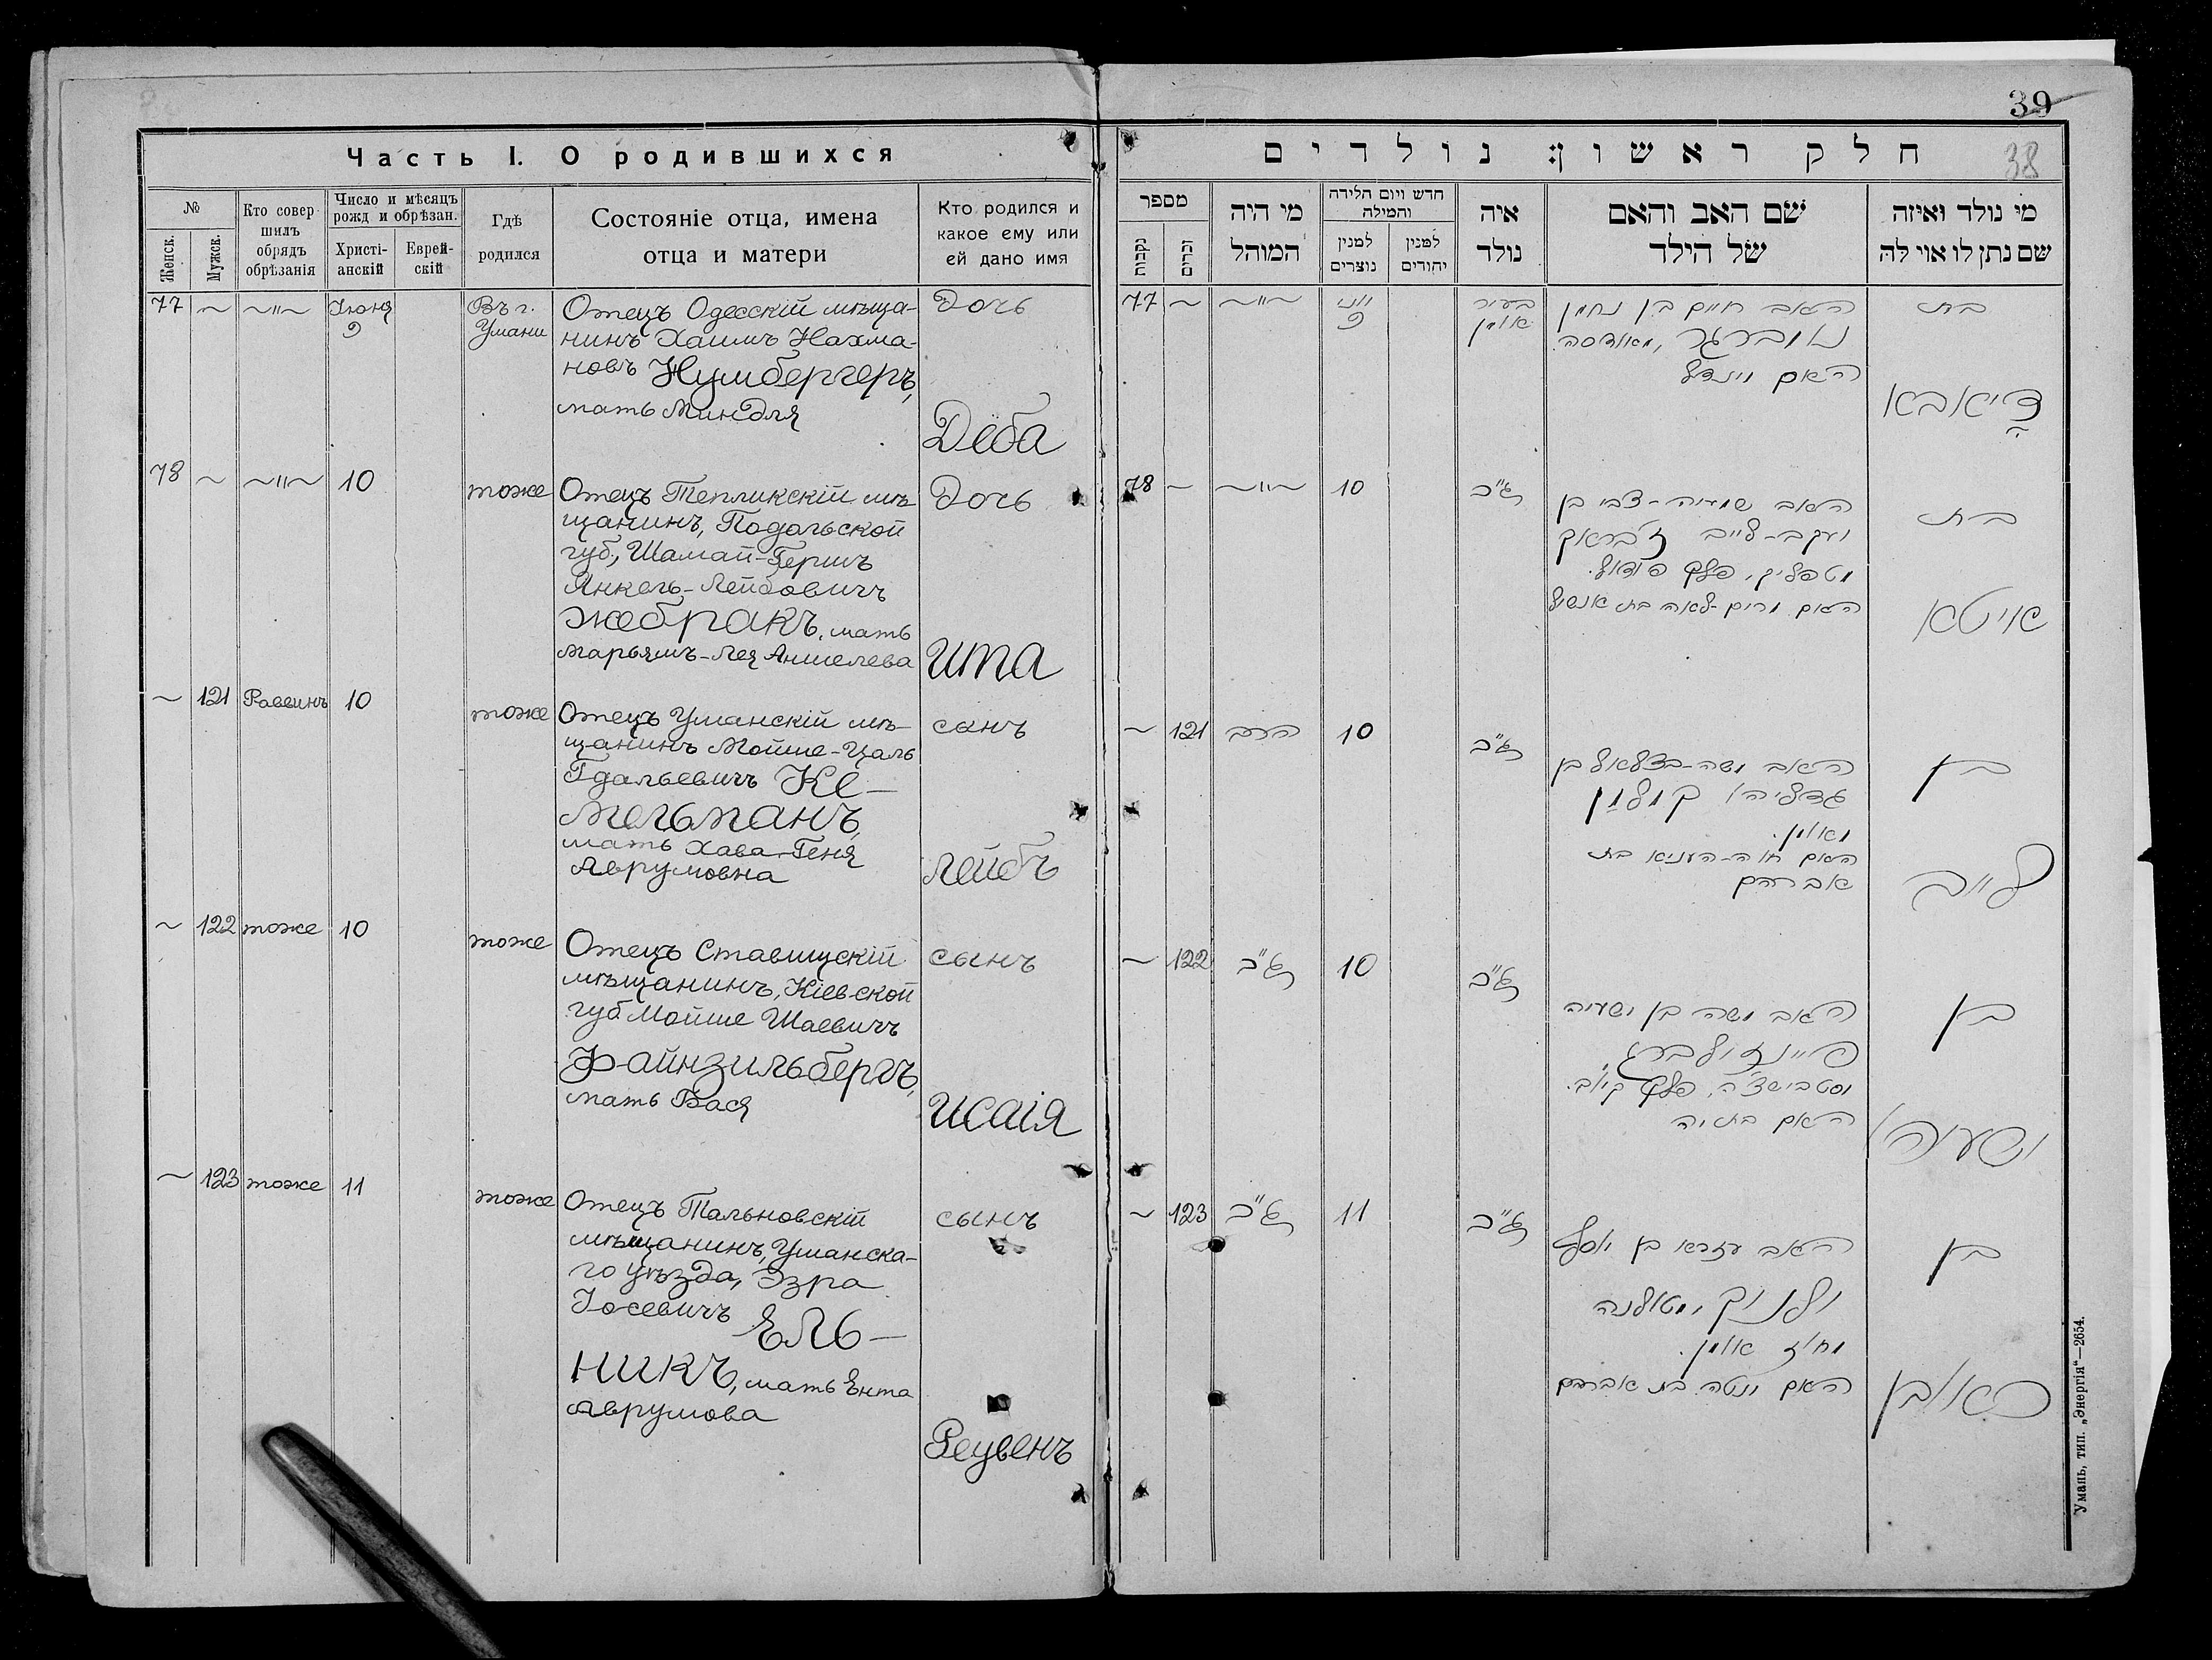 39
38
Часть I. О родившихся
№
Женск.
Мужск.
Кто совер-
шилъ
обрядъ
обрѣзанія
Число и мѣсяцъ
рожд и обрѣзан.
Христі-
анскій
Еврей-
скій
Гдѣ
родился
Состояніе отца, имена
отца и матери
Кто родился и
какое ему или
ей дано имя
77 ~ ~"~ Іюня
9
Въ г.
Умани
Отецъ Одесскій мѣща-
нинъ Хаимъ Нахма-
новъ Нумбергеръ,
мать Миндля
Дочь
Деба
78 ~ ~"~ 10 тоже
Отецъ Тепликскій мѣ-
щанинъ, Подольской
губ., Шамай-Гершъ
Янкель-Лейбовичъ
Жебракъ, мать
Марьямъ-Лея Аншелева
Дочь
Ита
~ 121 Раввинъ 10 тоже
Отецъ Уманскій мѣ-
щанинъ Мойше-Цаль
Гдальевичъ Ке-
мельманъ,
мать Хава-Геня
Аврумовна
сынъ
Лейбъ
~ 122 тоже 10 тоже
Отецъ Ставищскій
мѣщанинъ, Кіевской
губ. Мойше Шаевичъ
Файнзильбергъ,
мать Бася
сынъ
Исаія
~ 123 тоже 11 тоже
Отецъ Тальновскій
мѣщанинъ, Уманска-
го уѣзда, Эзра
Іосевичъ Ель-
никъ, мать Ента
Аврумова
сынъ
Реувенъ
חלק ראשון: נולדים
מספר
נקבות
זכרים
מי היה
המוהל
חדש ויום הלידה
והמילה
למנין
נוצרים
למנין
יהודים
איה
נולד
שם האב והאם
של הילד
מי נולד ואיזה
שם נתן לו אוי לה
77 ~ ~"~ יוני
9
בעיר
אומן
האב חיים בן נחמן
מאודסה
האם מינדל
בת
78 ~ ~"~ 10 כנ"ל
האב שמעיה-צבי בן
יעקב-לייב זשבראק
מטפליק, פלך פודול.
האם מרים-לאה בת אנשיל
בת
איטא
~ 121 הרב 10 כנ"ל
האב משה-בצלאל בן
גדליהו
מאומן.
האם חוה-העניא בת
אברהם
בן
לייב
~ 122 כנ"ל 10 כנ"ל
האב משה בן ישעיה
פיינזילברג,
מסטבישצ'ה, פלך קיוב.
האם בתיה
בן
ישעיהו
~ 123 כנ"ל 11 כנ"ל
האב עזרא בן יוסף
ילניק, מטאלנה
מחוז אומן.
האם ינטה בת אברהם
בן
ראובן
Умань, тип. „Энергія“—2654.